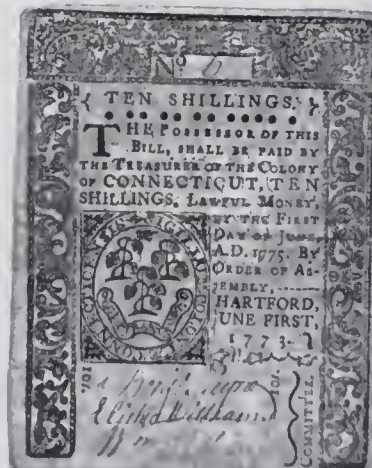 No
{ TEN SHILLINGS. }
THE POSSESSOR OF THIS
BILL, SHALL BE PAID BY
THE TREASURER OF THE COLONY
OF CONNECTICUT, TEN
SHILLINGS, LAWFUL MONEY,
BY THE FIRST
DAY OF JUNE,
A.D. 1775. BY
ORDER OF AS-
SEMBLY,
HARTFORD,
JUNE FIRST,
1773.
10s.
10s.
Elisha Williams
COMMITTEE.